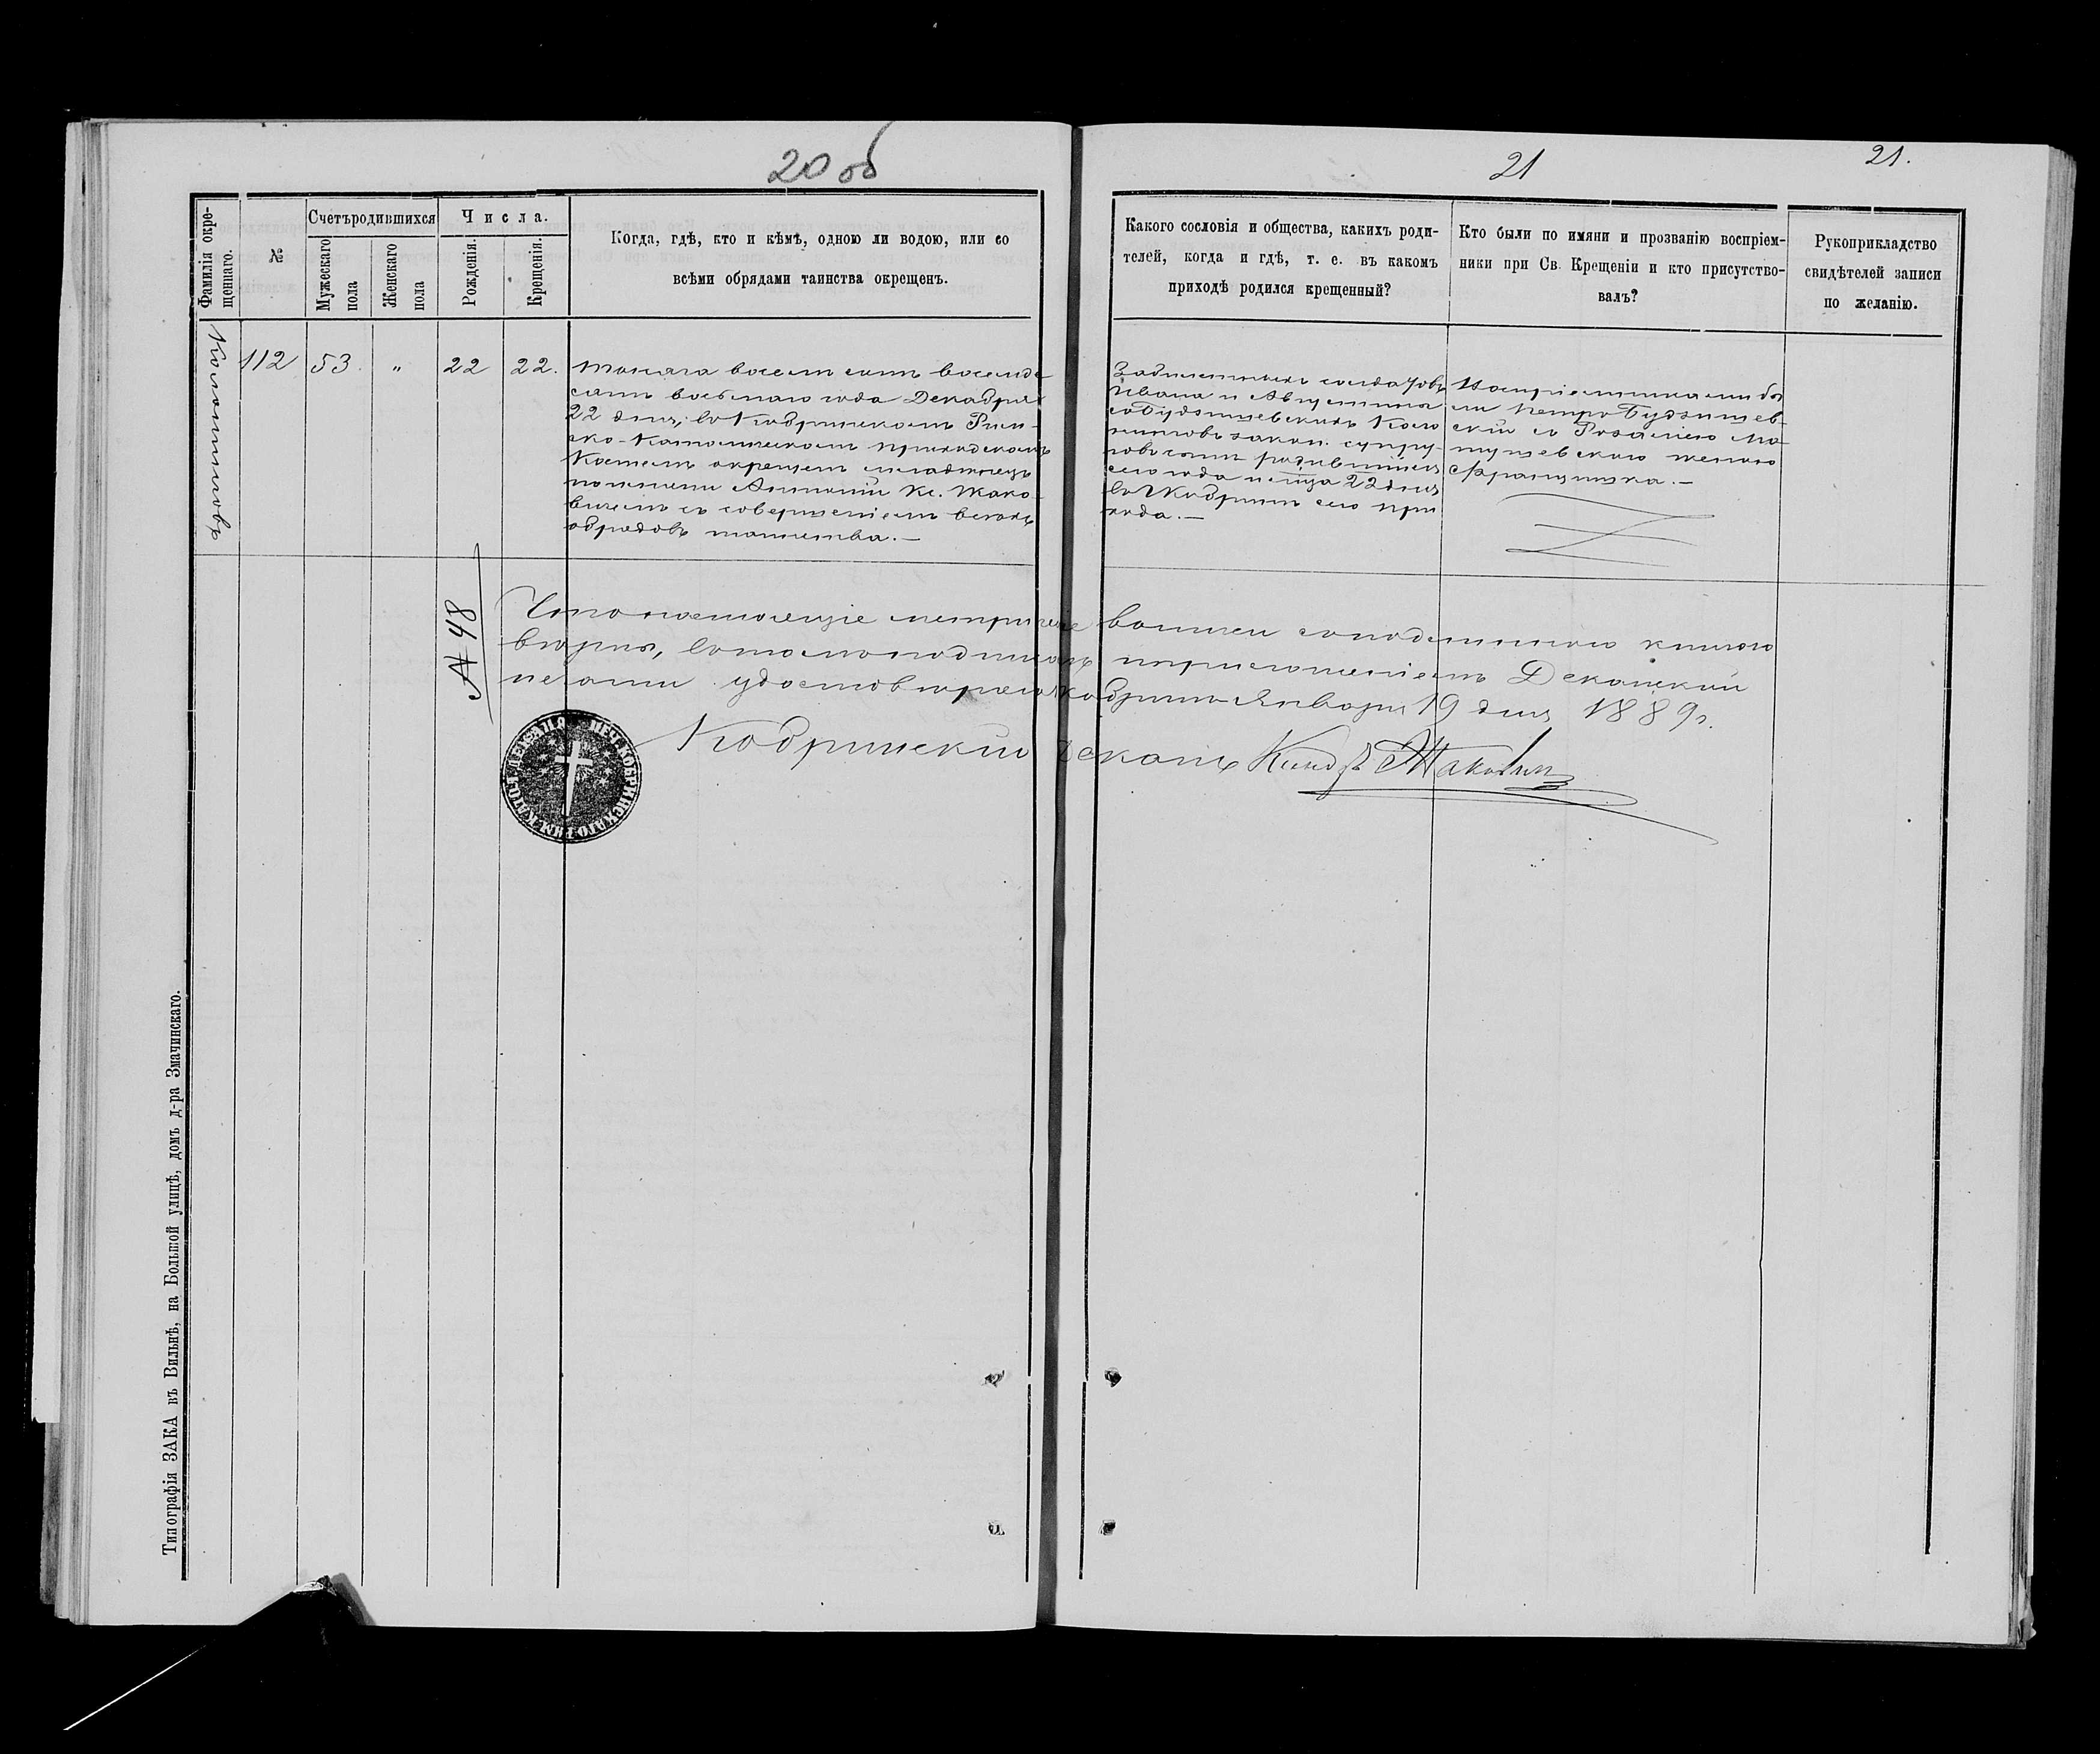 20 об
21
21.
Фамилія окре-
щеннаго.
№
Счетъ родившихся
Мужескаго
пола
Женскаго
пола
Числа.
Рожденія.
Крещенія.
Когда, гдѣ, кто и кѣмъ, одною ли водою, или со
всѣми обрядами таинства окрещенъ.
Какого сословія и общества, какихъ роди-
телей, когда и гдѣ, т. е. въ какомъ
приходѣ родился крещенный?
Кто были по имяни и прозванію воспріем-
ники при Св. Крещеніи и кто присутство-
валъ?
Рукоприкладство
свидѣтелей записи
по желанію.
112
53.
"
22
22.
Тысяча восемь сотъ восемьде-
сятъ восьмаго года Декабря
22 дня, въ Кобринскомъ Рим-
ско-Католическомъ приходскомъ
Костелѣ окрещенъ младенецъ
по имени Антоній Кс. Жако-
вичемъ съ совершеніемъ всѣхъ
обрядовъ таинства.—
Ивана и
законн. супру-
говъ сынъ родившійся
сего года 22 дня
въ г. Кобринѣ сего при-
хода.—
Воспріемниками бы-
ли Петръ Будзишев-
скій съ Розаліею Ма-
тушевскаго женою
Францишка.—
№ 48
Что настоящіе метрическіе выписи съ подлинною книгою
вѣрны, въ томъ подписью и приложеніемъ Деканской
печати удостовѣряю г. Кобринъ Января 19 дня 1889 г.
Кобринскій Деканъ Ксендзъ Жаковичъ
Типографія ЗАКА въ Вильнѣ, на Большой улицѣ, домъ д-ра Змачинскаго.